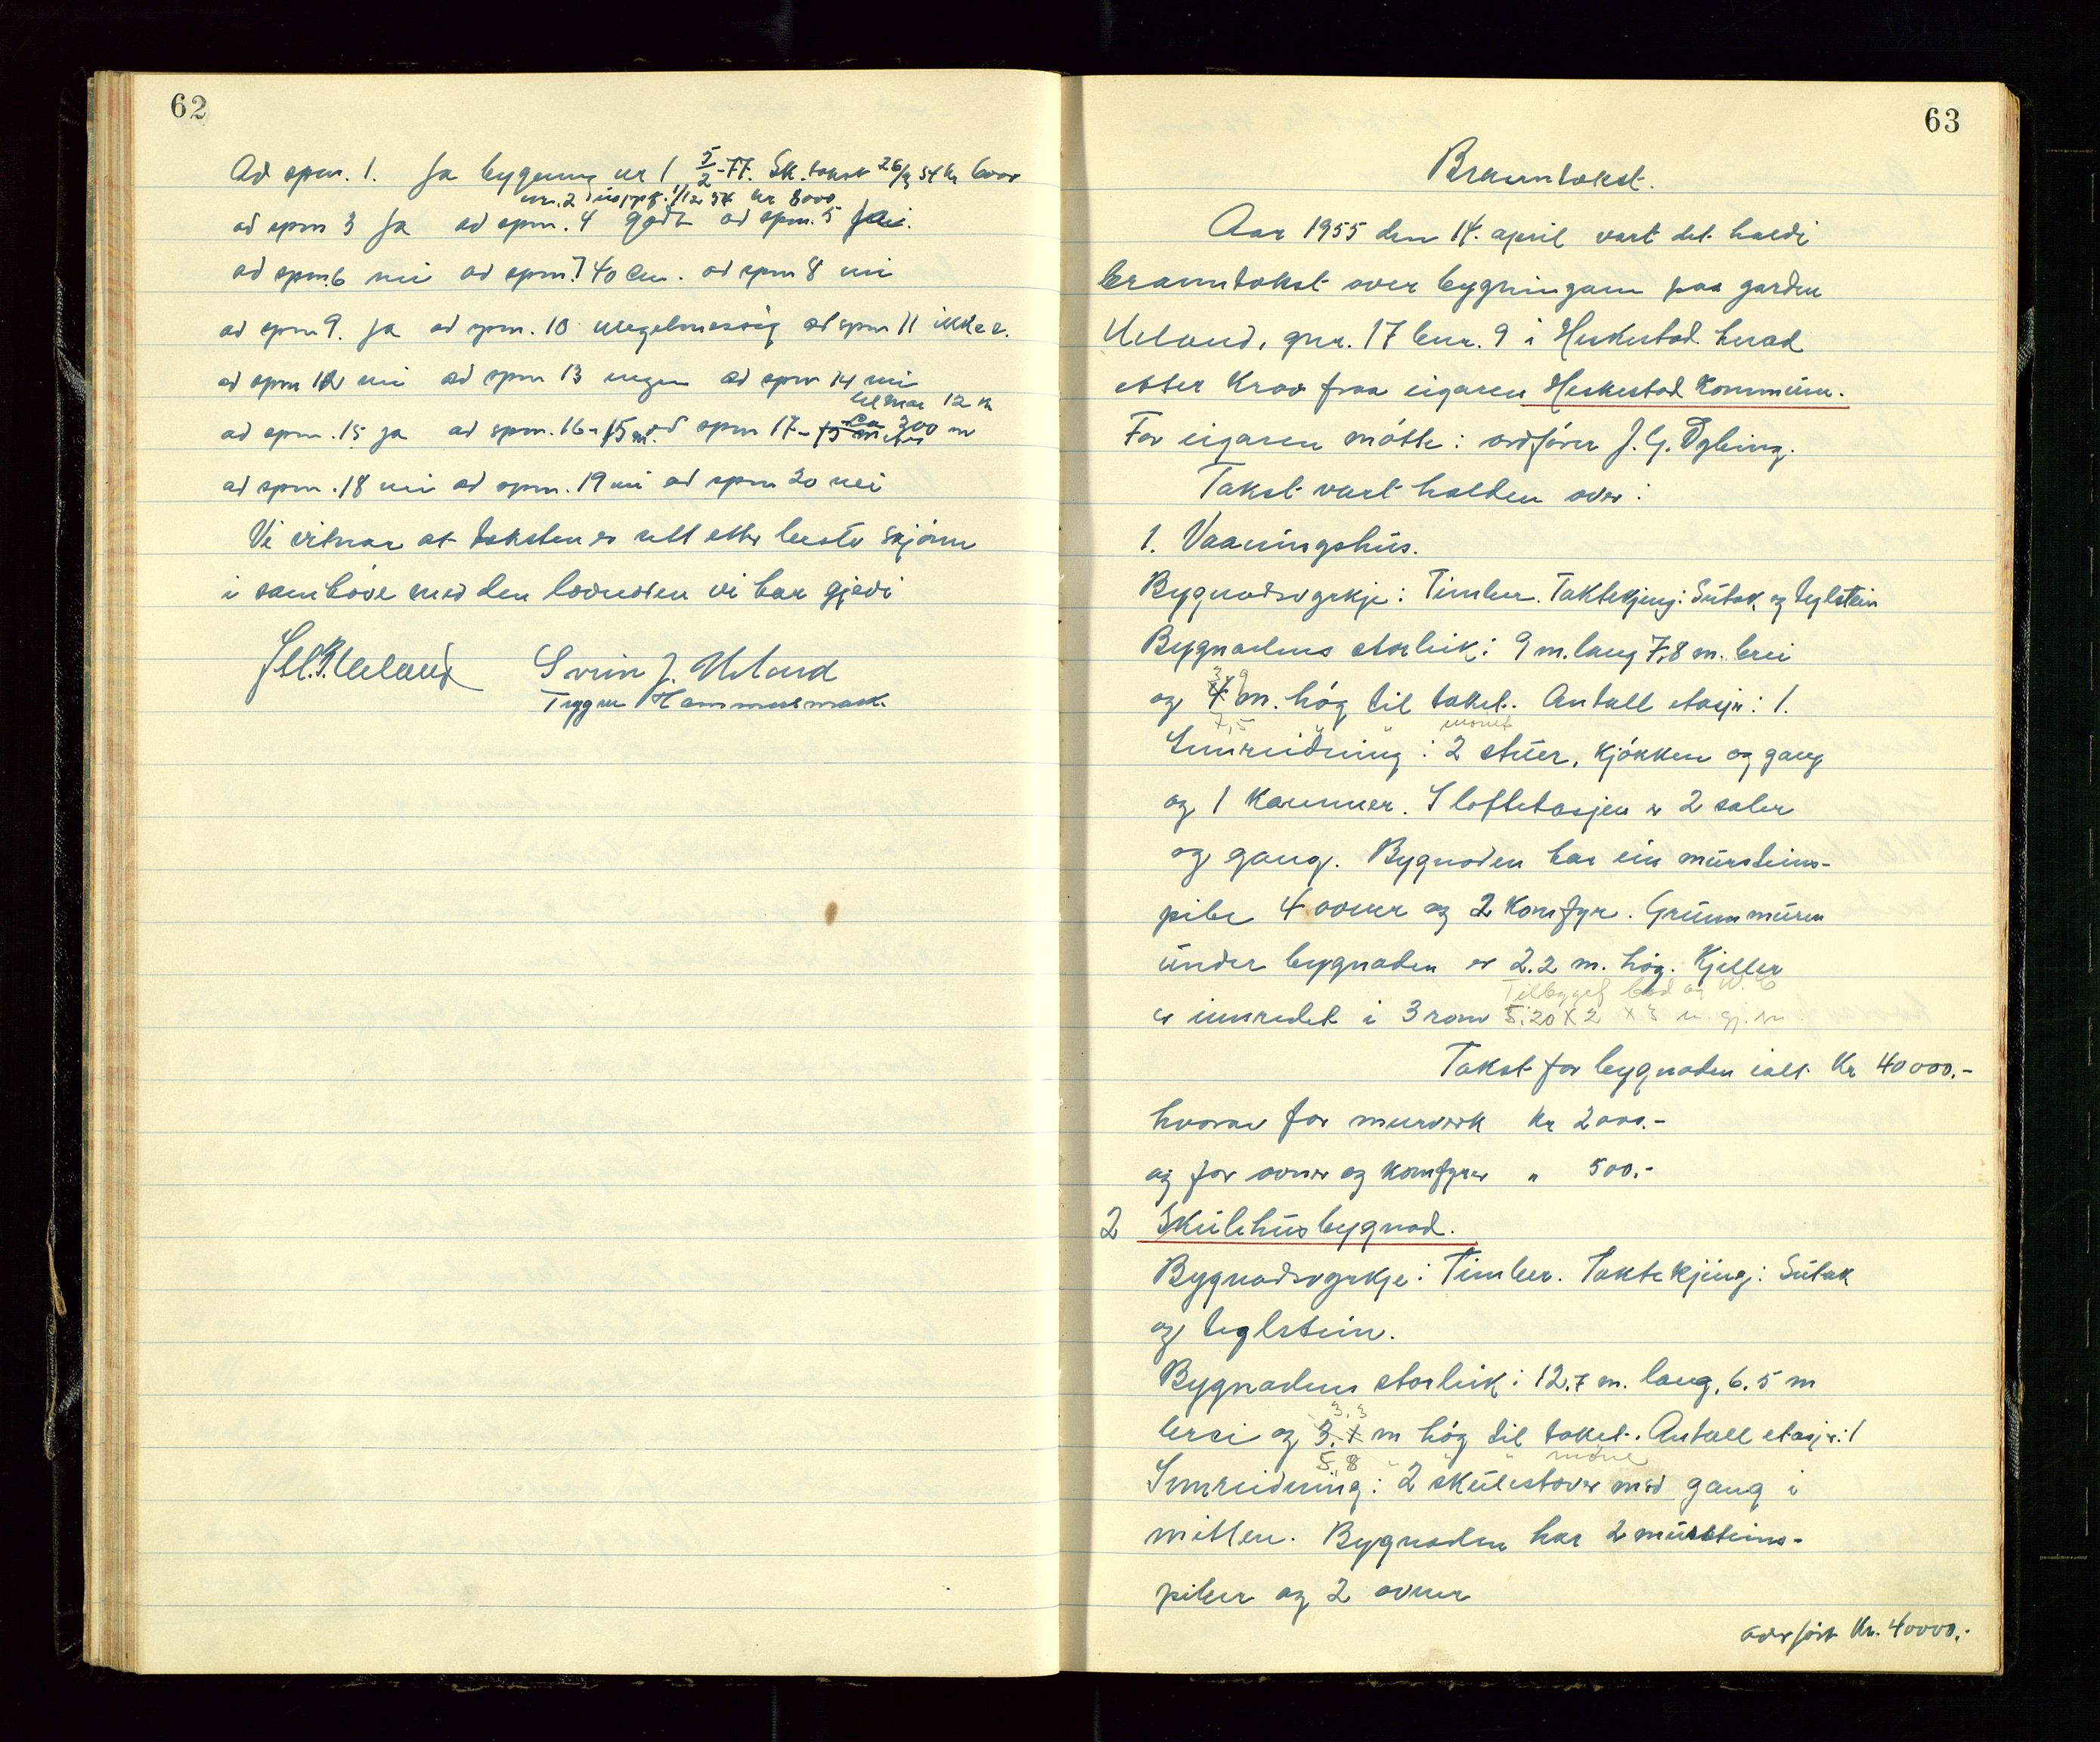 62
Ad spm. 1. Ja bygning nr 1 5/2-77. Sk. takst 26/ 54 kr 6000
nr. 2 54 kr 8000
ad spm 3 Ja ad spm. 4 godt ad spm. 5
ad spm. 6 nei ad spm. 7 40 cm. ad spm 8 nei
ad spm 9. Ja ad spm. 10 uregelmessig ad spm 11
ad spm 12 nei ad spm 13 ingen ad spm 14 nei
12 m
ad spm. 15 ja ad spm. 16 - 15 m. ad spm 17 - 15 meter ca 300 m
ad spm. 18 nei ad spm. 19 nei ad spm 20 nei
Vi vitnar at taksten er sett etter beste skjönn
i samhöve med den lovnaden vi har gjedi
Ueland Svein J. Ueland
Trygve Hammersmark.
63
Branntakst.
Aar 1955 den 14. april vart det haldi
branntakst over bygningane paa garden
Ueland, gnr. 17 bnr. 9 i Heskestad herad
etter krav fraa eigaren Heskestad Kommune.
For eigaren mötte: ordförer J. G. Eglring.
Takst vart halden over:
1. Vaaningshus.
Bygnadsvyrkje: Timber. Taktekjing: Sutak og teglstein
Bygnadens storleik: 9 m. lang 7,8 m. brei
3,9
og 4 m. hög til taket. Antall etasjer: 1.
7,5 " " mönet
Innreidning: 2 stuer, kjökken og gang
og 1 kammer. I loftetasjen er 2 saler
og gang. Bygnaden har ein mursteins-
pibe 4 ovner og 2 komfyr. Grunnmuren
under bygnaden er 2.2 m. hög. Kjeller
Tilbygget bad og W.C
er innredet i 3 rom 5.20 X 2 X 3 m gj. sn
Takst for bygnaden ialt kr 40000.-
hvorav for murverk kr 2000.-
og for ovner og komfyrer " 500.-
2 Skulehusbygnad.
Bygnadsvyrkje: Timber. Taktekjing: Sutak
og teglstein.
Bygnadens storleik: 12.7 m. lang, 6.5 m
3,3
brei og 3.1 m hög til taket. Antall etasjer: 1
5,8 " " " möne
Innreidning: 2 skulestover med gang i
mitten. Bygnaden har 2 mursteins-
piber og 2 ovner
overfört kr. 40000.-